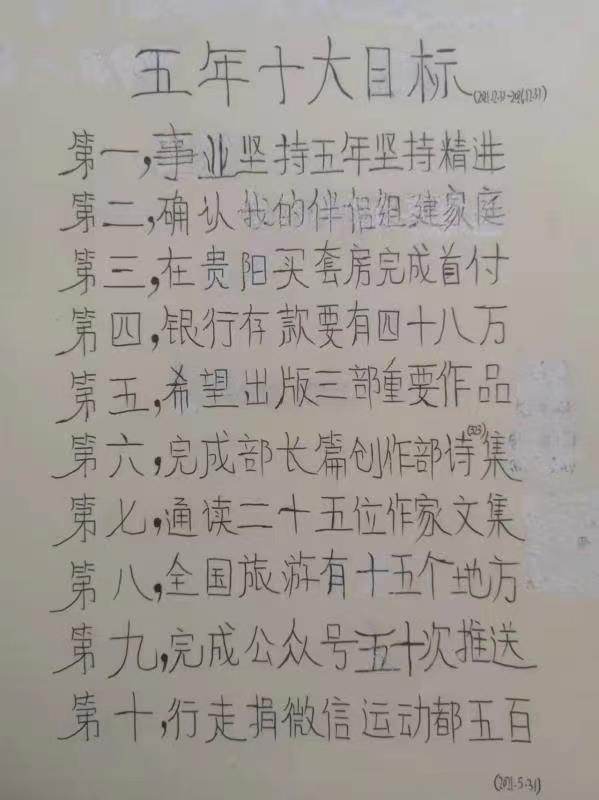 五年十大目标
第一,事业坚持五年坚持精进
第二,确认我的伴侣组建家庭
第三,在贵阳买套房完成首付
第四,银行存款要有四十八万
第五,希望出版三部重要作品
第六,完成部长篇创作部诗集
第七,通读二十五位作家文集
第八,全国旅游有十五个地方
第九,完成公众号五十次推送
第十,行走捐微信运动都五百
(2021.5.31)